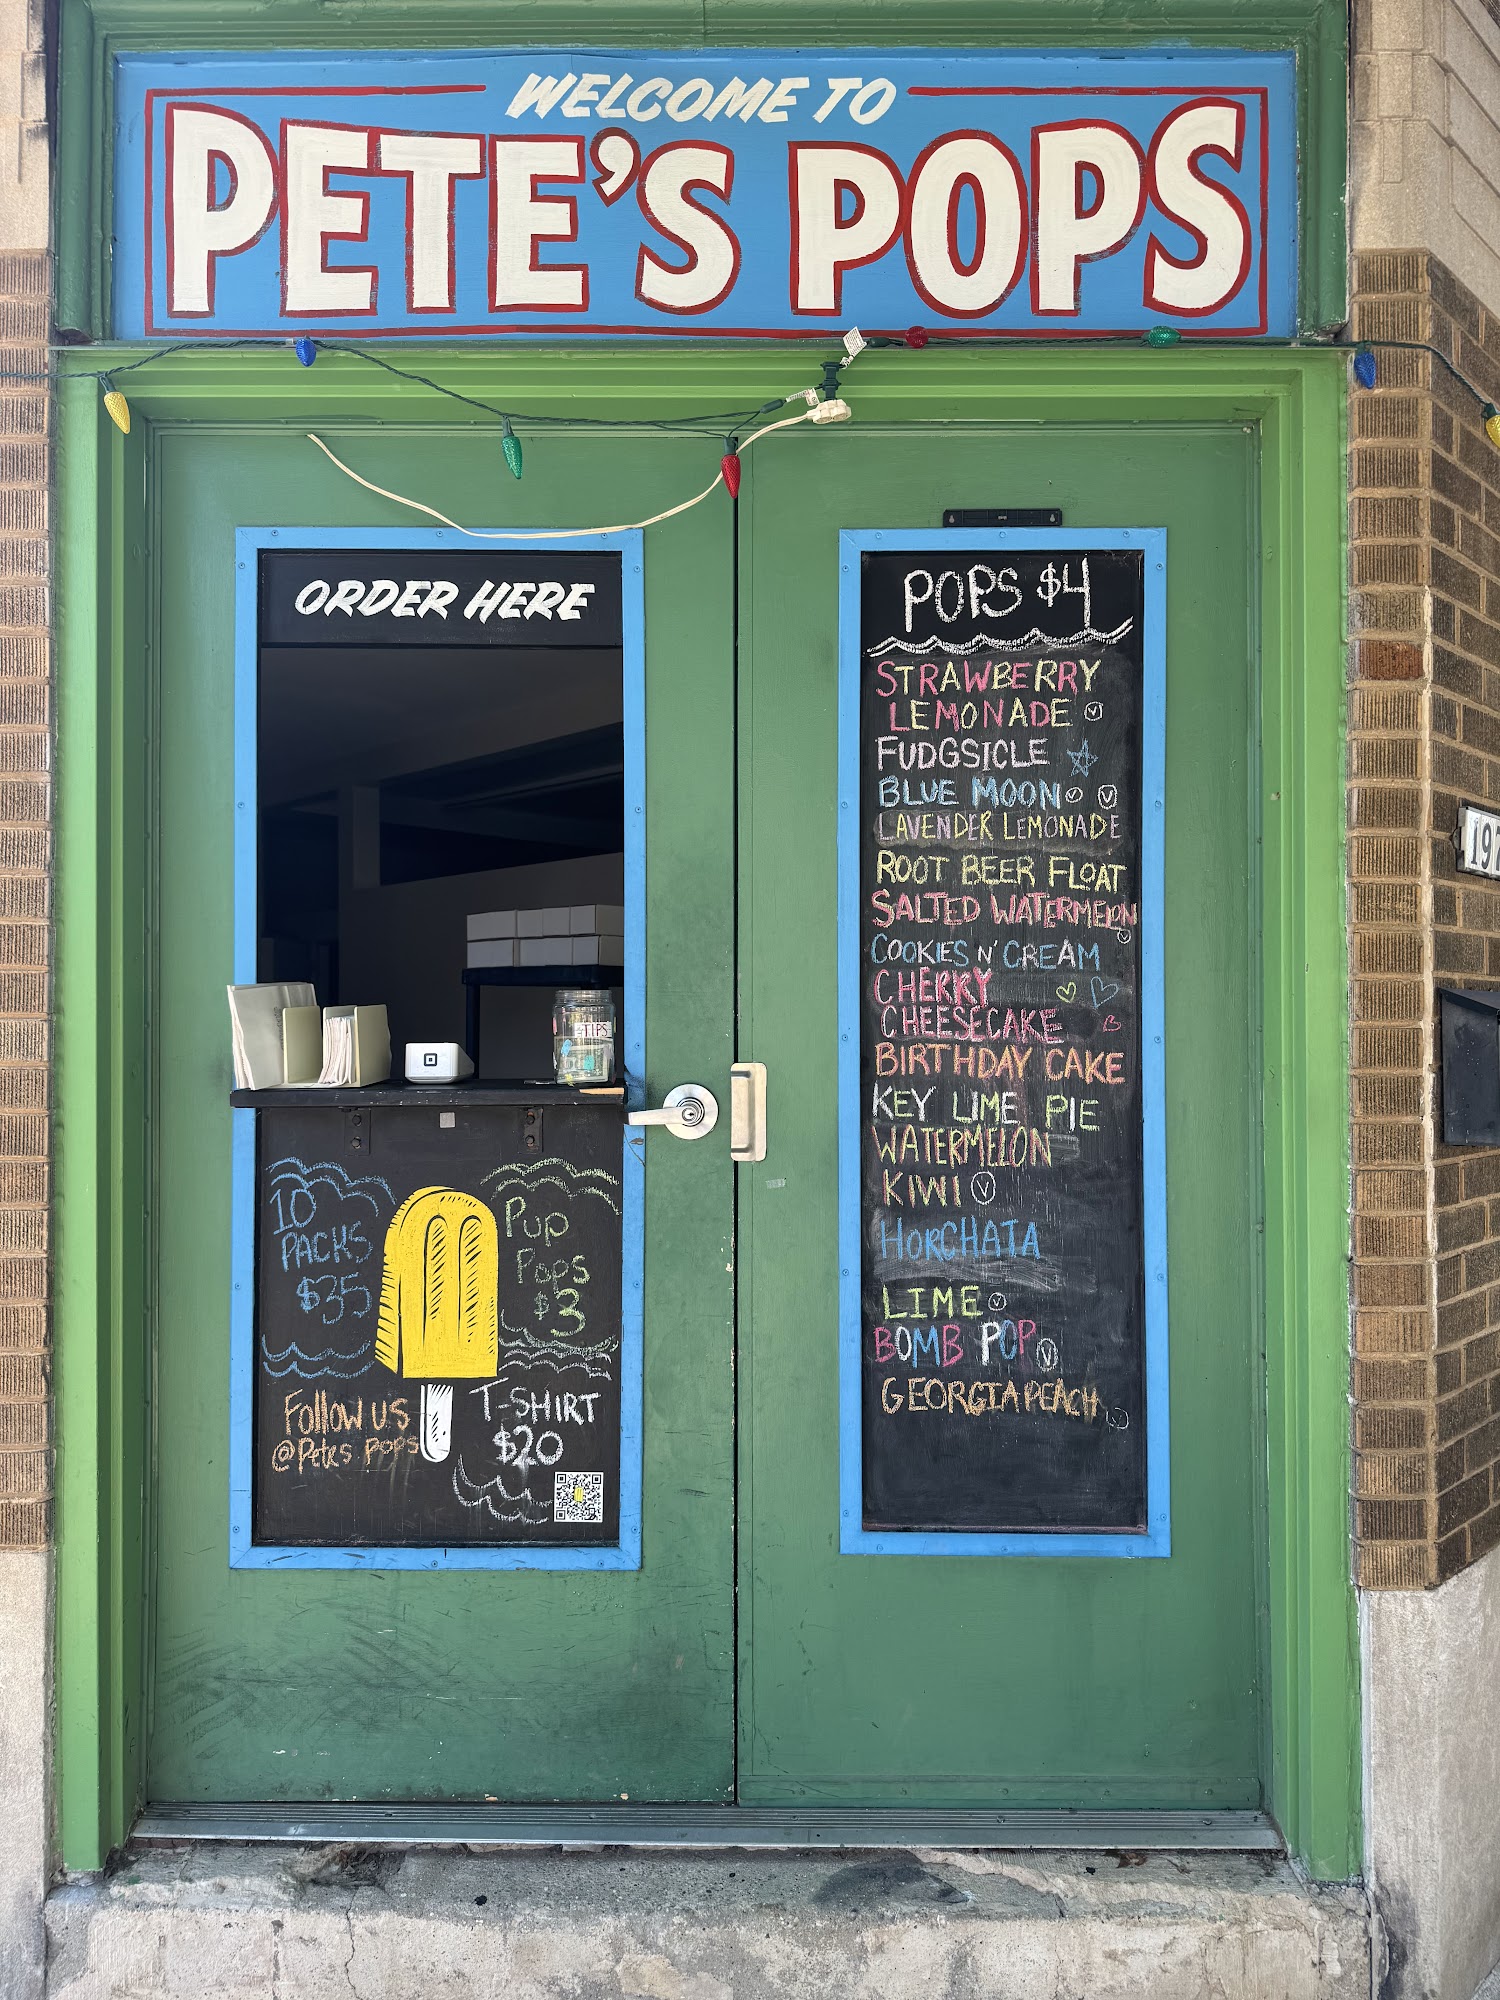 WELCOME TO
PETE'S POPS
ORDER HERE
TIPS
10
PACKS
$35
PUP
POPS
$3
FOLLOW US
@Petes pops
T-SHIRT
$20
POPS $4
STRAWBERRY
LEMONADE V
FUDGSICLE
BLUE MOON V V
LAVENDER LEMONADE
ROOT BEER FLOAT
SALTED WATERMELON
V
COOKIES N' CREAM
CHERRY
CHEESECAKE
BIRTHDAY CAKE
KEY LIME PIE
WATERMELON
KIWI V
HORCHATA
LIME V
BOMB POP V
GEORGIA PEACH V
197